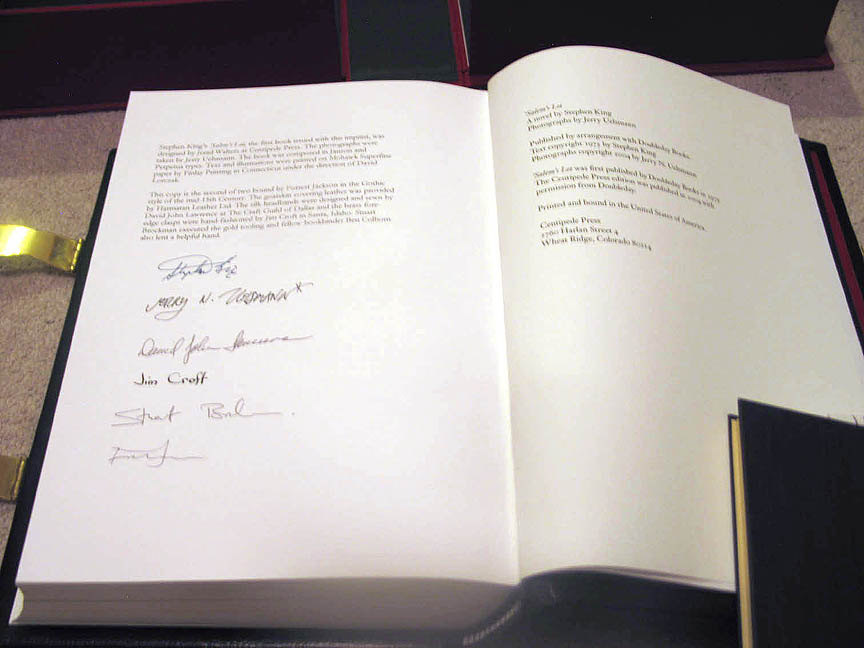 Stephen King's 'Salem's Lot, the first book issued with this imprint, was
designed by Jerad Walters at Centipede Press. The photographs were
taken by Jerry Uelsmann. The book was composed in Janson and
Perpetua types. Text and illustrations were printed on Mohawk Superfine
paper by Finlay Printing in Connecticut under the direction of David
This copy is the second of two bound by Forrest Jackson in the Gothic
style of the mid-15th Century. The goatskin covering leather was provided
by Harmatan Leather Ltd. The silk headbands were designed and sewn by
David John Lawrence at The Craft Guild of Dallas and the brass fore-
edge clasps were hand-fashioned by Jim Croft in Santa, Idaho. Stuart
Brockman executed the gold tooling and fellow bookbinder Ben
also lent a helpful hand.
Stephen King
JERRY N. UELSMANN*
David John Lawrence
Jim Croft
Stuart
'Salem's Lot
A novel by Stephen King
Photographs by Jerry Uelsmann
Published by arrangement with Doubleday Books.
Text copyright 1975 by Stephen King
Photographs copyright 2004 by Jerry N. Uelsmann
'Salem's Lot was first published by Doubleday Books in 1975
The Centipede Press edition was published in 2004 with
permission from Doubleday.
Printed and bound in the United States of America.
Centipede Press
1760 Harlan Street 4
Wheat Ridge, Colorado 80214